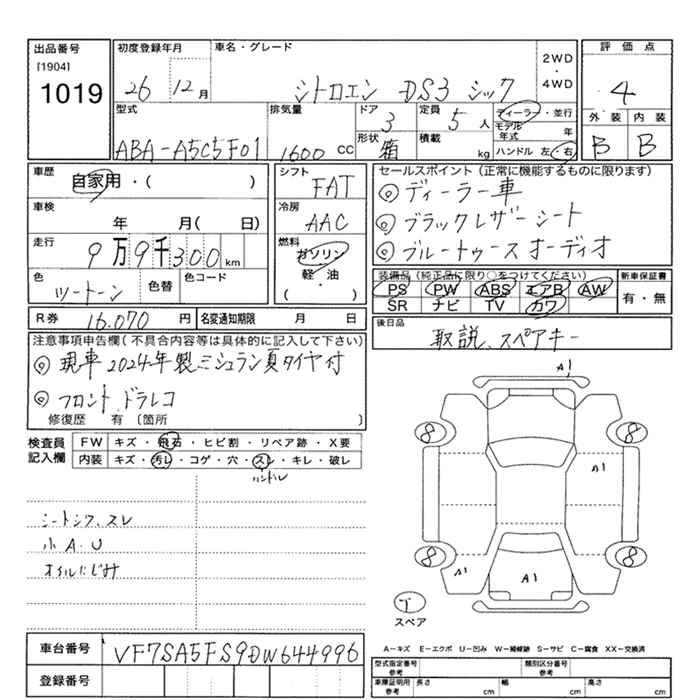 出品番号
[1904]
1019
初度登録年月
26 12月
車名・グレード
シトロエン DS3 シック
2WD
・
4WD
評価点
4
外装 内装
B B
型式
ABA-A5C5F01
排気量
1600 CC
ドア
3
形状
箱
定員
5人
積載
kg
ディーラー・並行
モデル年式 年
ハンドル 左・右
車歴
自家用・( )
シフト
FAT
車検
年 月( 日)
冷房
AAC
走行
9万9千300km
燃料
ガソリン
軽・油
( )
色
ツートーン
色替
色コード
セールスポイント(正常に機能するものに限ります)
◎ディーラー車
◎ブラックレザーシート
◎ブルートゥースオーディオ
装備品(純正品に限り○をつけてください)
PS PW ABS エアB AW
SR ナビ TV カワ
新車保証書
有・無
R券 16,070 円
名変通知期限 月 日
後日品
取説、スペアキー
注意事項申告欄(不具合内容等は具体的に記入して下さい)
◎現車2024年製ミシュラン夏タイヤ付
◎フロントドラレコ
修復歴 有〔箇所 〕
検査員記入欄
FW キズ・飛石・ヒビ割・リペア跡・X要
内装 キズ・汚レ・コゲ・穴・スレ・キレ・破レ
ハンドル
シートシワ、スレ
小A・U
オイルにじみ
A1
8 8
A1
8 8
A1 A1
T
スペア
A―キズ E―エクボ U―凹み W―補修跡 S―サビ C―腐食 XX―交換済
車台番号 VF7SA5FS9DW644996
登録番号
型式指定番号 参考
類別区分番号 参考
車庫証明用 参考 長さ cm 幅 cm 高さ cm